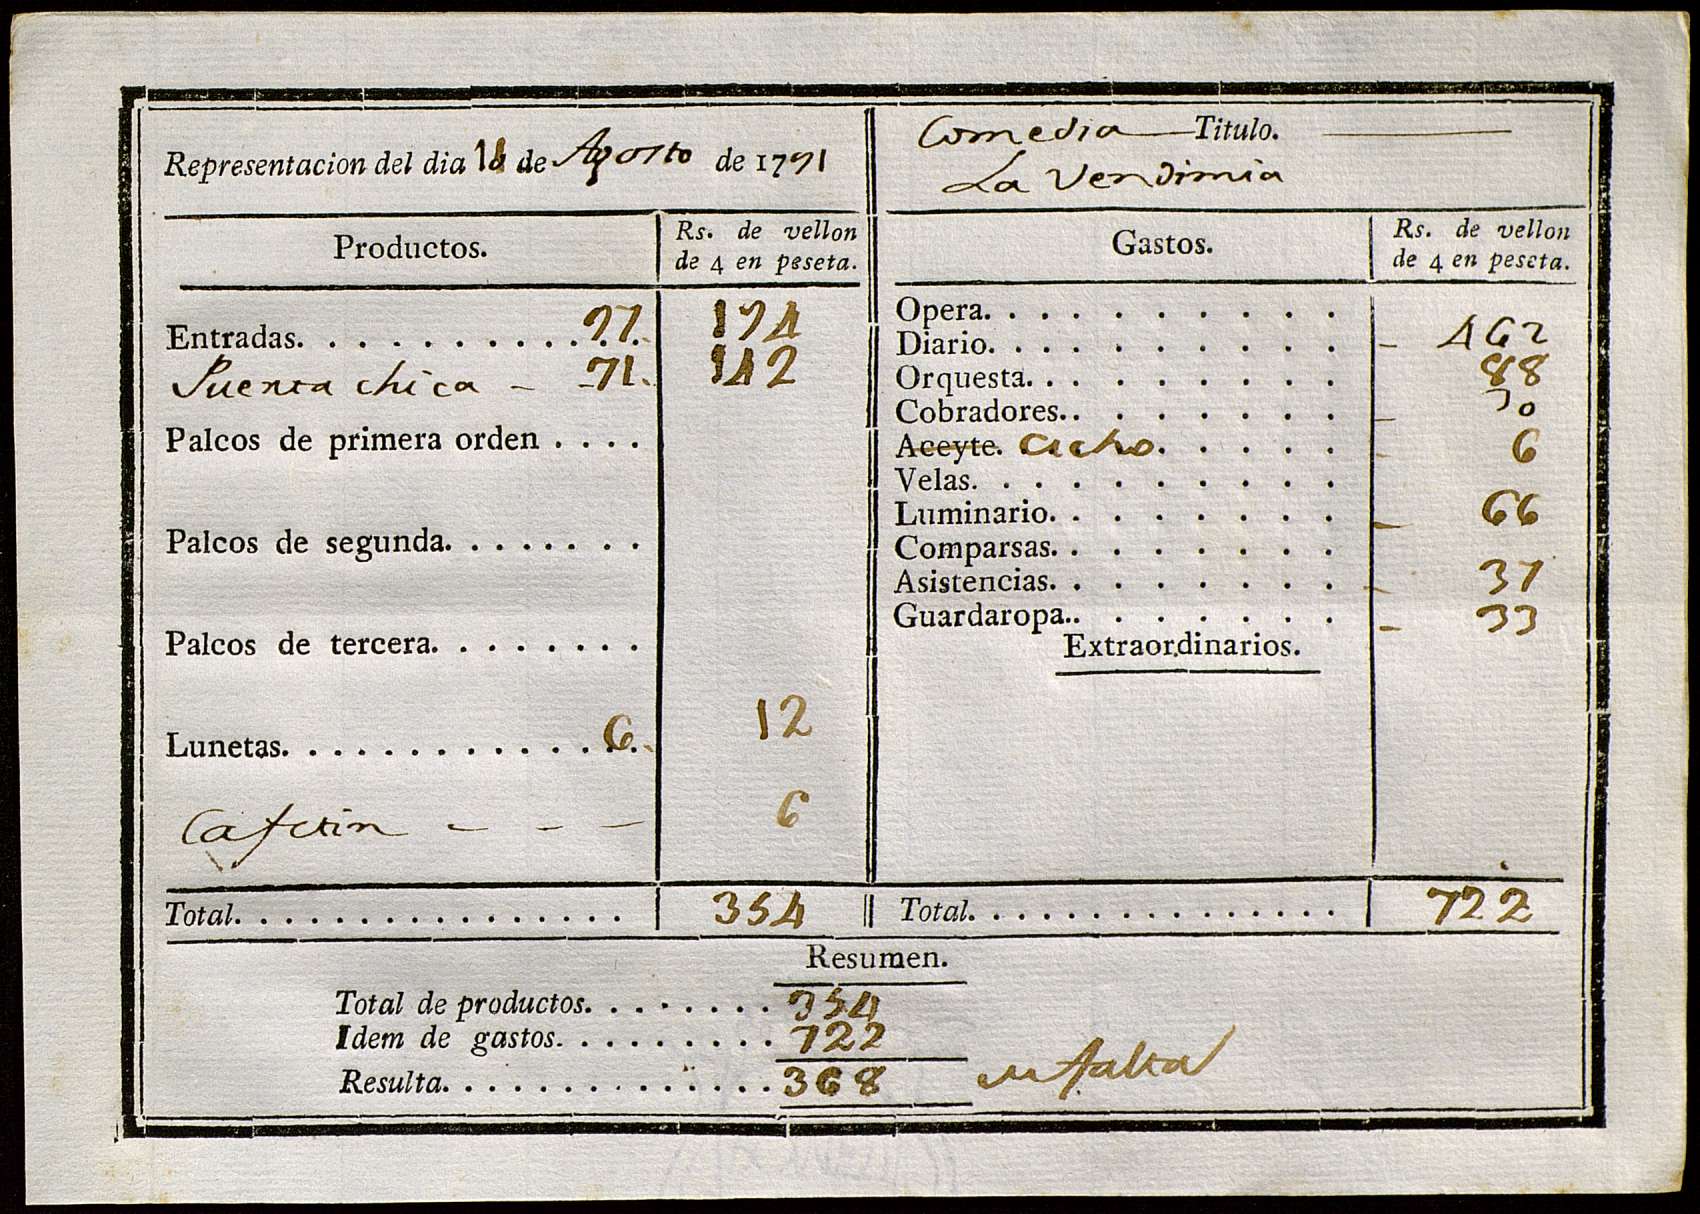 Representacion del dia 18 de Agosto de 1791
Comedia Titulo.
La Vendimia
Productos. Rs. de vellon de 4 en peseta.
Gastos. Rs. de vellon de 4 en peseta.
Entradas. 97. 194
Puerta chica - 71. 142
Palcos de primera orden
Palcos de segunda.
Palcos de tercera.
Lunetas. 6. 12
Cafetin - - - 6
Total. 354
Opera.
Diario. 462
Orquesta. 88
Cobradores. 30
Aceyte. 6
Velas.
Luminario. 66
Comparsas.
Asistencias. 37
Guardaropa. 33
Extraordinarios.
Total. 722
Resumen.
Total de productos. 354
Idem de gastos. 722
Resulta. 368 en falta